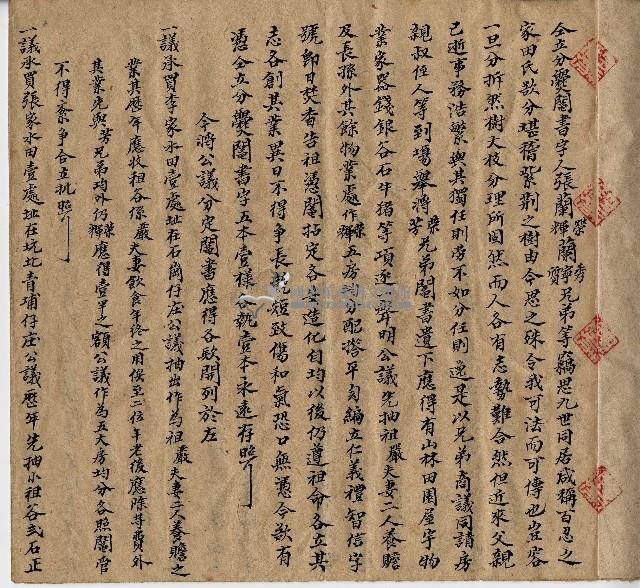 仝立分爨鬮書字人張蘭輝蘭兄弟等竊思九世同居咸稱百忍之
家田氏欲分堪稽紫荊之樹由今思之殊令我可法而可傳也豈容
一旦分拆然樹大枝分理所固然而人各有志勢難合然但近來父親
已逝事務浩繁與其獨任則勞不如分任則逸是以兄弟商議同請房
親叔侄人等到場舉將芳榮兄弟鬮書遺下應得有山林田園屋宇物
業家器錢銀谷石牛猪等項逐一算明公議先抽祖嚴夫妻二人養贍
及長孫外其餘物業處作輝榮五房分配搭平匀編立仁義禮智信字
號即日焚香告祖憑鬮拈定各安造化自均以後仍遵祖命各立其
志各創其業異日不得爭長競短致傷和氣恐口無憑今欲有
憑仝立分爨鬮書字五本壹樣各執壹本永遠存照
今將公議分定鬮書應得各欵開列於左
一議承買李家水田壹處址在石崗仔庄公議抽出作為祖嚴夫妻二人養贍之
業其歷年應收租谷係嚴夫妻飲食年終之用俟至二位年老後應除喪費外
其業先與芳兄弟均外仍輝榮應得壹半之額公議作為五大房均分各照鬮管
不得紊爭合立批照
一議承買張家水田壹處址在坑北青埔仔庄公議歷年先抽小租谷弍石正